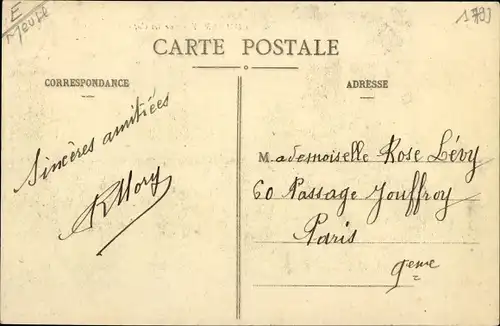 E
Meuse
CARTE POSTALE
CORRESPONDANCE
ADRESSE
Sincères amitiées
Mademoiselle Rose Lévy
60 Passage Jouffroy
Paris
9eme